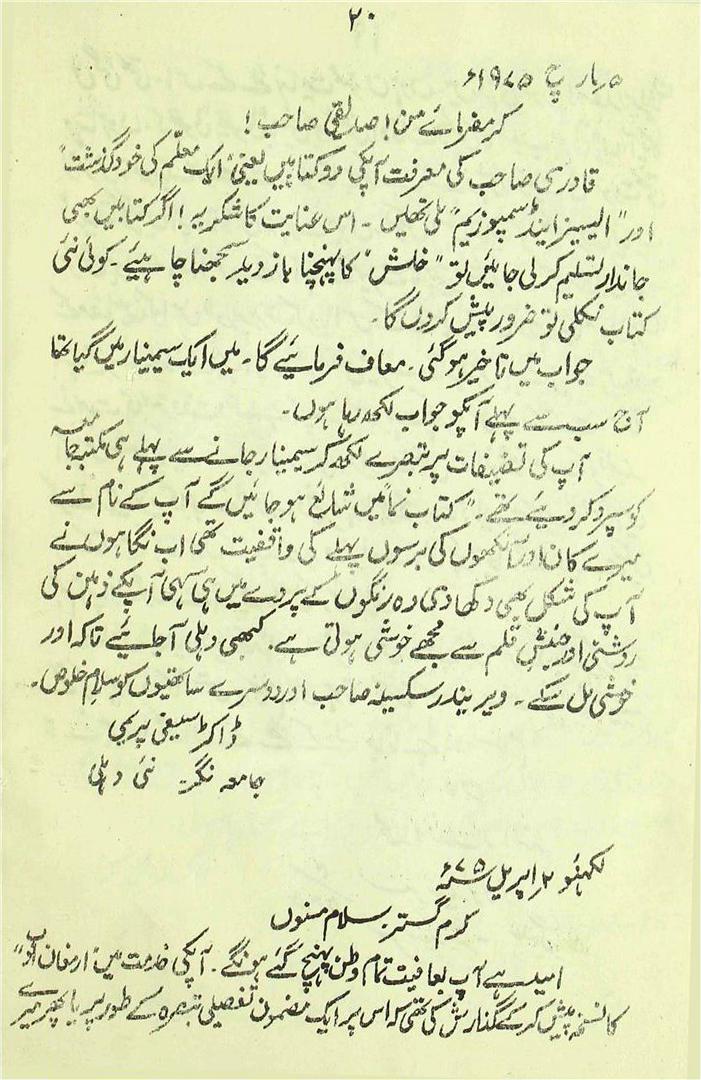 ۲۰
۵ مارچ ۱۹۷۵ء
کرمفرمائے من! صدیقی صاحب!
قادری صاحب کی معرفت آپکی دو کتابیں یعنی "ایک معلّم کی خودگذشت"
اور "ایسیز اینڈ سمپوزیم" ملی تھیں۔ اس عنایت کا شکریہ! اگر کتابیں بھی
جاندار تسلیم کر لی جائیں تو "خلش" کا پہنچنا بازدید سمجھنا چاہیئے۔ کوئی نئی
کتاب نکلی تو ضرور پیش کروں گا۔
جواب میں تاخیر ہو گئی۔ معاف فرمائیے گا۔ میں ایک سیمینار میں گیا تھا
آج سب سے پہلے آپکو جواب لکھ رہا ہوں۔
آپ کی تصنیفات پر تبصرے لکھ کر سیمینار جانے سے پہلے ہی مکتبہ جامعہ
کو سپرد کر دیئے تھے۔ "کتاب نما" میں شائع ہو جائیں گے آپ کے نام سے
میرے کان اور آنکھوں کی برسوں پہلے کی واقفیت تھی اب نگاہوں نے
آپ کی شکل بھی دکھا دی وہ رنگوں کے پردے میں ہی سہی آپکے ذہن کی
روشنی اور جنبشِ قلم سے مجھے خوشی ہوتی ہے۔ کبھی دہلی آجائیے تاکہ اور
خوشی مل سکے۔ ویریندر سکسینہ صاحب اور دوسرے ساتھیوں کو سلام خلوص۔
ڈاکٹر سیفی پریمی
جامعہ نگر۔ نئی دہلی
لکھنؤ ۲ اپریل ۷۵ء
کرم گستر۔ سلام مسنون
امید ہے آپ بعافیت تمام وطن پہنچ گئے ہونگے۔ آپکی خدمت میں "ارمغان
کا نسخہ پیش کر کے گذارش کی تھی کہ اس پر ایک مضمون تفصیلی تبصرہ کے طور پر یا پھر میرے